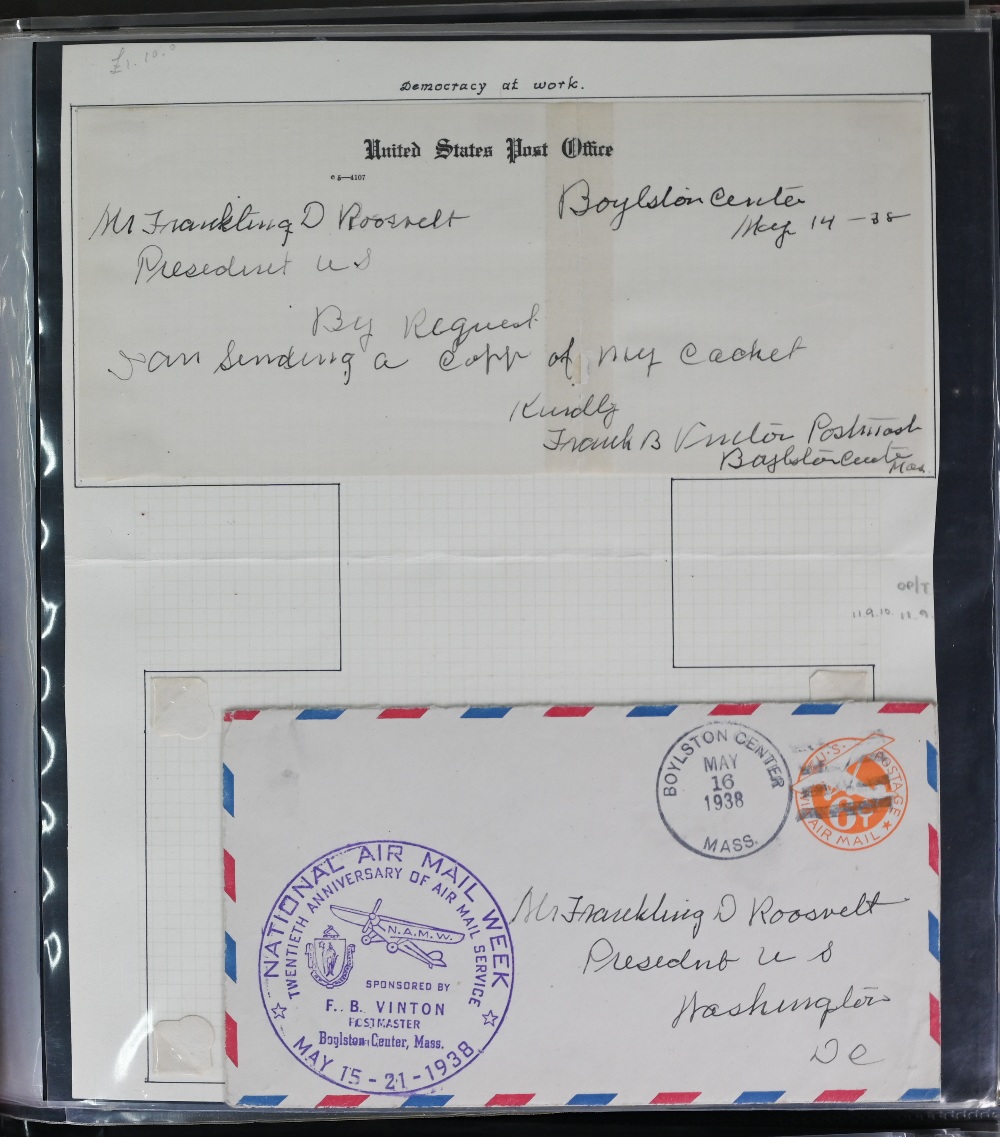 £1.10.0
Democracy at work.
United States Post Office
c5—4107
Boylston Center
May 14 - 38
Mr Frankling D Roosvelt
Presedent U S
By Request
I am Sending a Copp of My Cachet
Kindly
Frank B Vinton Postmast
Boylston Cente
Mas.
OP/T
11.9.10. 11.9.
BOYLSTON CENTER
MAY
16
1938
MASS.
U.S. POSTAGE
6¢
VIA AIR MAIL
NATIONAL AIR MAIL WEEK
TWENTIETH ANNIVERSARY OF AIR MAIL SERVICE
N.A.M.W.
SPONSORED BY
F. B. VINTON
POSTMASTER
Boylston Center, Mass.
MAY 15-21-1938
Mr Frankling D Roosvelt
Presednt U S
Washington
D C